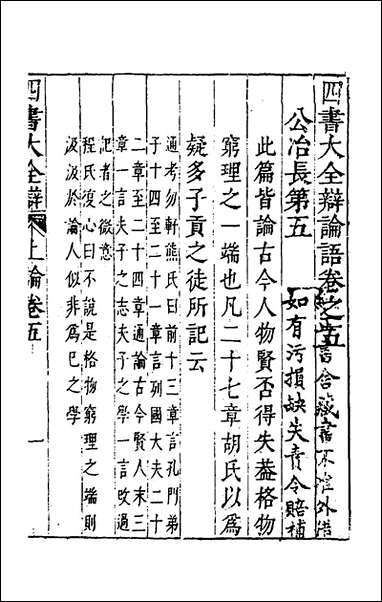 四書大全辯論語卷之五
書舍藏書不准外借
如有污損缺失責令賠補
公冶長第五
此篇皆論古今人物賢否得失葢格物
窮理之一端也凡二十七章胡氏以爲
疑多子貢之徒所記云
通考勿軒熊氏曰前十三章言孔門弟
子十四至二十一章言列國大夫二十
二章至二十四章通論古今賢人末三
章一言夫子之志夫子之學一言改過
記者之微意
程氏復心曰不說是格物窮理之端則
汲汲於論人似非爲己之學
四書大全辯
上論卷五
一